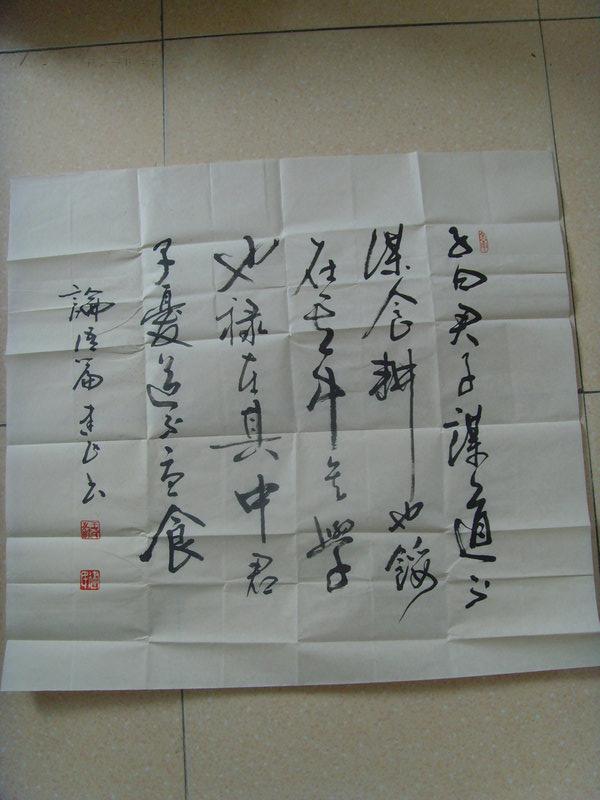 子曰君子謀道不
謀食耕也餒
在其中矣學
也禄在其中君
子憂道不食
論語篇书